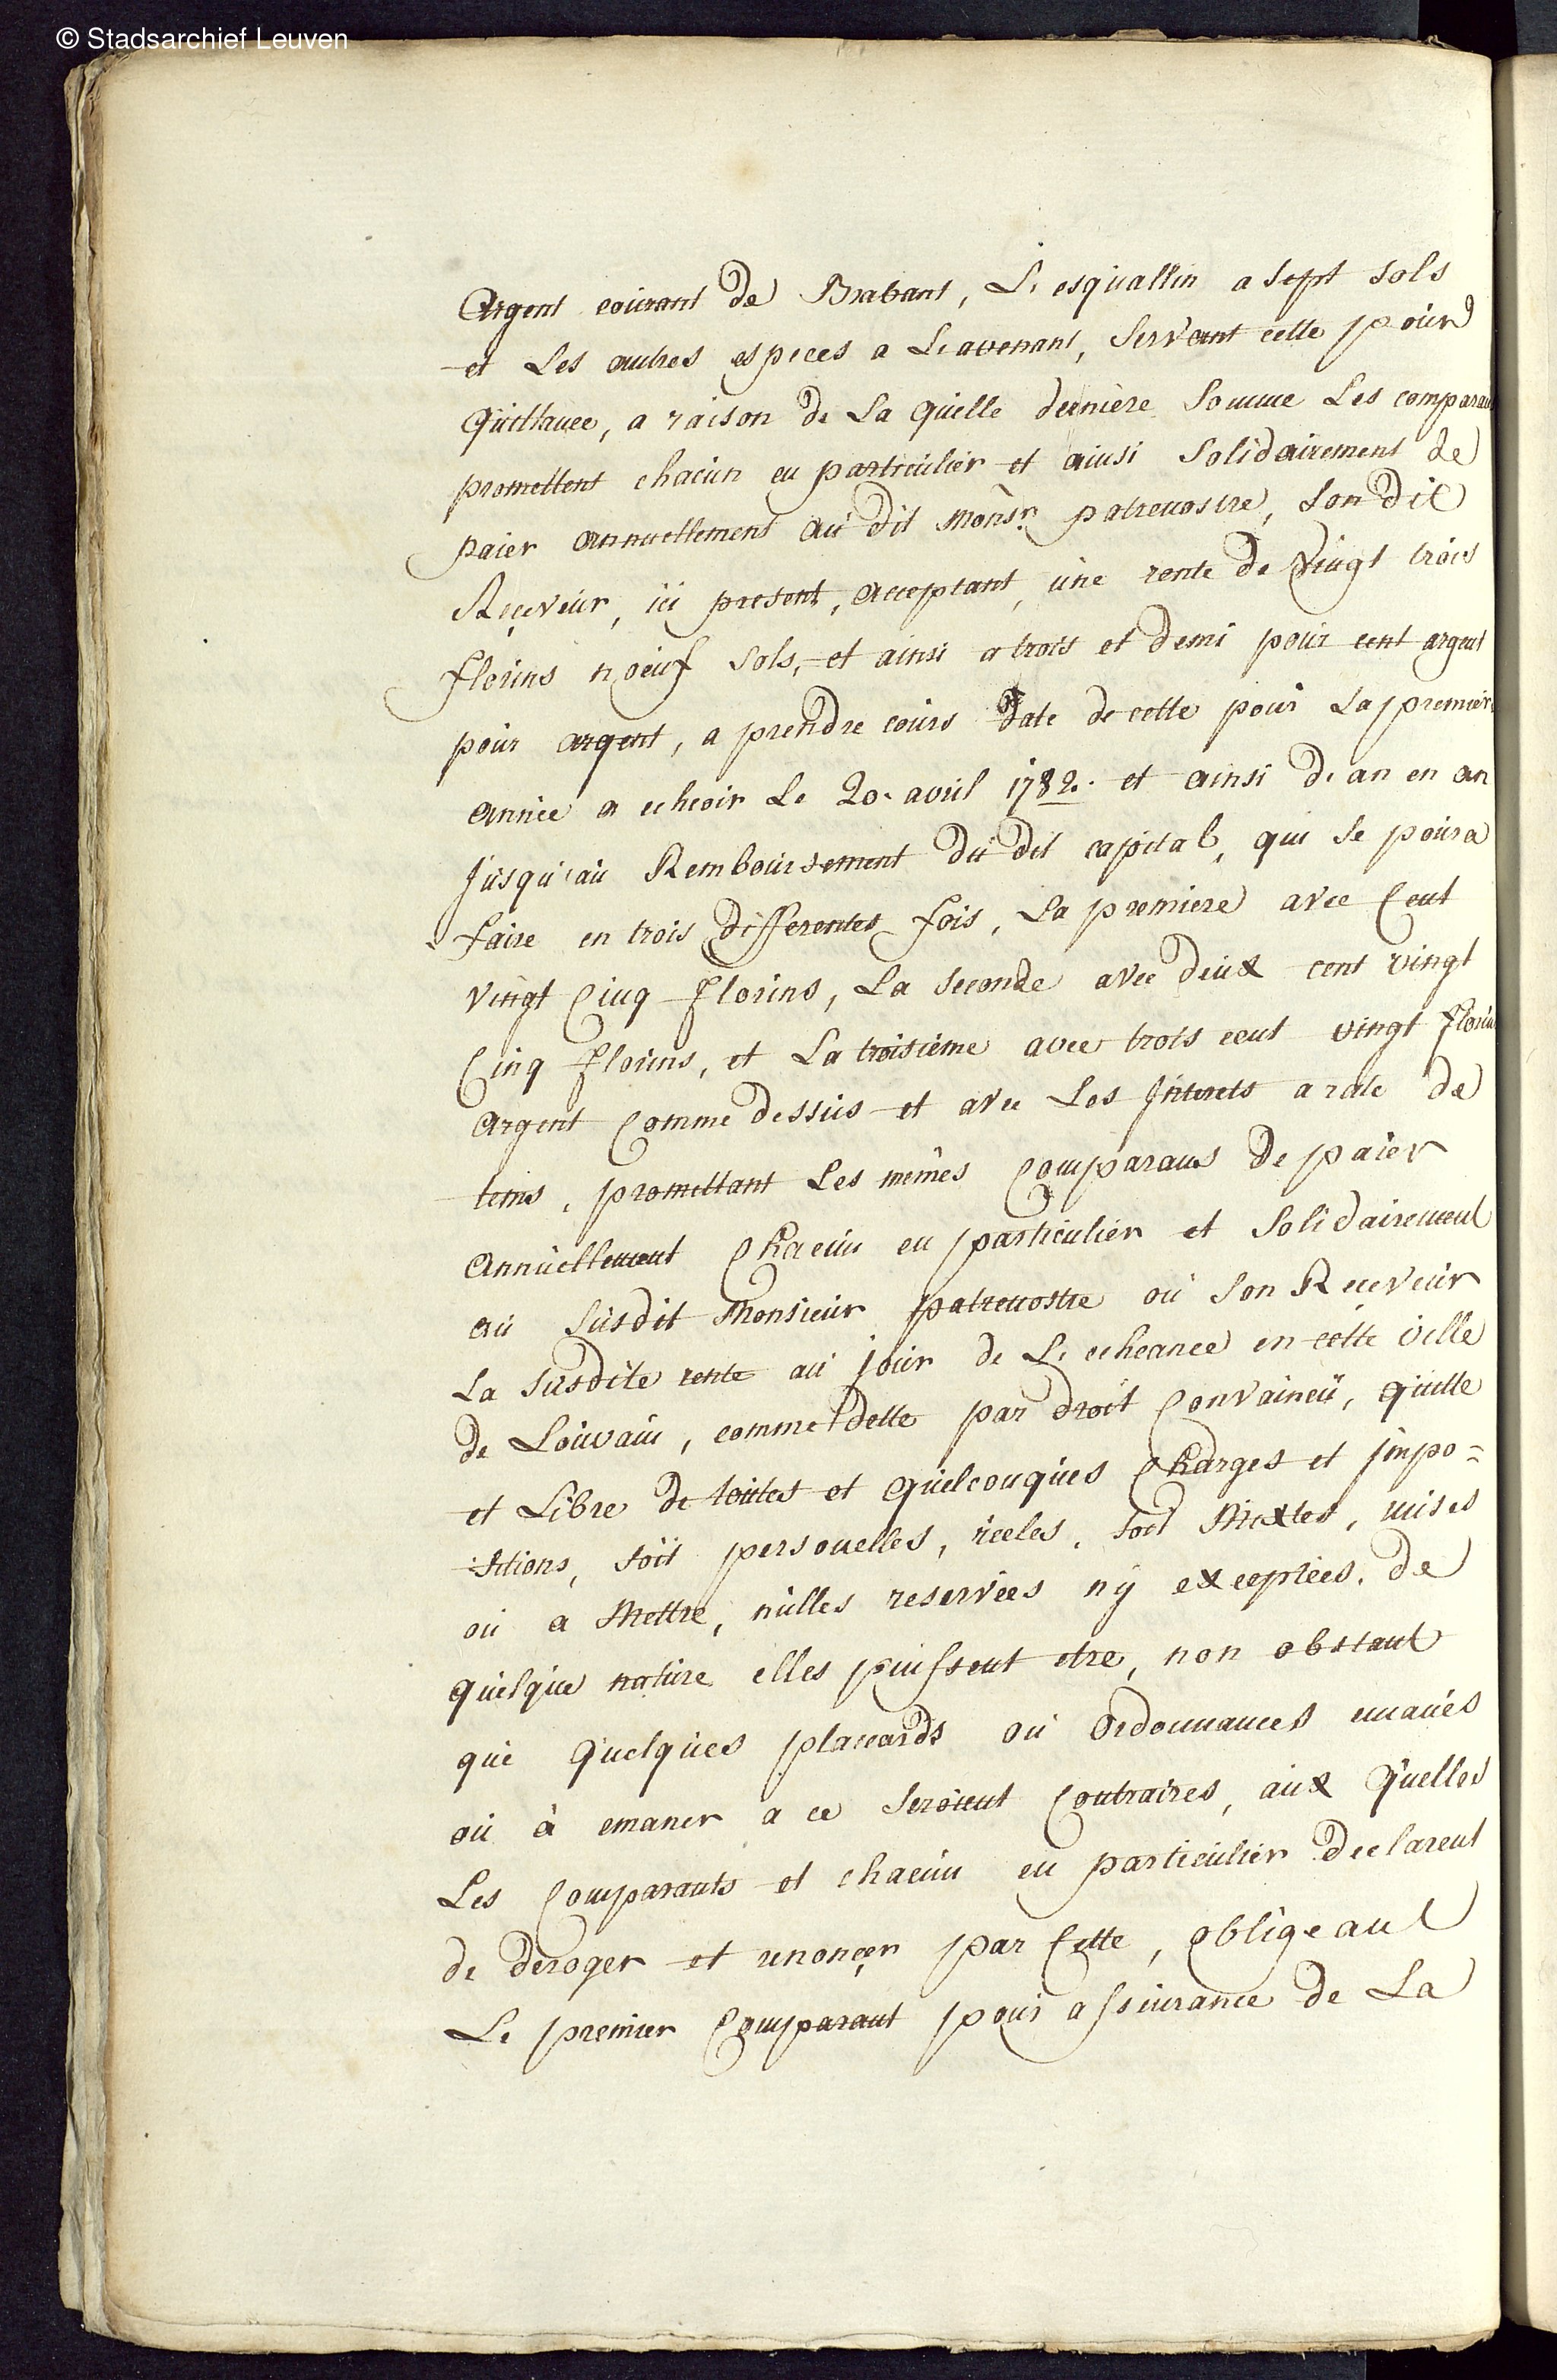 © Stadsarchief Leuven
Argent courant de Brabant, L'esquallin a sept sols
et Les autres especes a L'avenant, Servant cette pour
Quittance, a raison de La quelle dernière Somme Les comparan
promettent chacun en particulier et ainsi Solidairement de
paier annuellement au dit Monsr. patrenostre, Son dit
Reçeveur, ici present, acceptant, une rente de Vingt trois
florins noeuf sols, et ainsi a trois et demi pour cent argent
pour argent, a prendre cours date de cette pour La premiere
Année a echeoir Le 20. avril 1782. et ainsi d'an en an
Jusqu'au Remboursement du dit capital, qui Se poura
faire en trois differentes fois, La premiere avec Cent
vingt Cinq florins, La Seconde avec deux cent vingt
Cinq florins, et La troisième avec trois cent vingt florins
Argent Comme dessus et avec Les Jnterets a rate de
tems, promettant Les mêmes Comparans de paier
Annuellement Chacun en particulier et Solidairement
au Susdit Monsieur patrenostre ou Son Receveur
La Susdite rente au jour de L'echeance en cette ville
de Louvain, comme dette par droit Convaincu, quitte
et Libre de toutes et quelconques Charges et jmpo=
:sitions, soit personelles, réeles, soit Mixtes, mises
ou a Mettre, nulles reservées ny exceptées, de
quelque nature elles puissent etre, non obstant
que quelques placcards ou Ordonnances emanés
ou à emaner a ce Seroient Contraires, aux quelles
Les Comparants et chacun en particulier declarent
de deroger et renonçer par Cette, obligeant
Le premier Comparant pour assurance de La